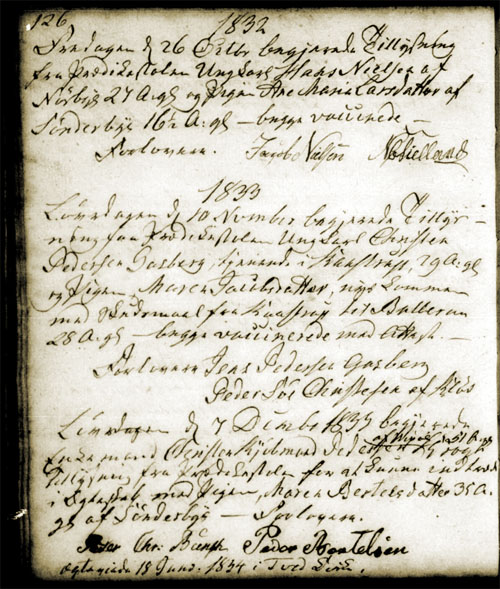 126
1832
Fredagen d 26 Octbr begjerede Tillysning
fra Prædikestolen Ungkarl Hans Nielsen af
Nørbye 27 A: gl og Pigen Ane Maria Larsdatter af
Sønderbye 16½ A: gl – begge vaccinerede –
Forlovere. Jacob Nielsen
1833
Løverdagen d 10 November begjerede Tillys-
ning fra Prædikestolen Ungkarl Christen
Pedersen Gasberg, tjenende i Kaastrup, 29 A: gl
og Pigen Maren Jacobsdatter, nys kommen
med Skudsmaal fra Kaastrup til
28 A: gl – begge vaccinerede med Attest. –
Forlovere Jens Pedersen Gasberg
Peder Christensen af
Løverdagen d 7 Decembr 1833 begjerede
Enkemand Christen Kjøbmand Pedersen
Tillysning fra Prædikestolen for at kunne indtræde
i Egteskab med Pigen, Maren Bertelsdatter 35 A:
gl af Sønderbye – Forlovere.
Peder Chr: Peder Bertelsen
Egteviede 18 Januar 1834 i Tved Kirke.